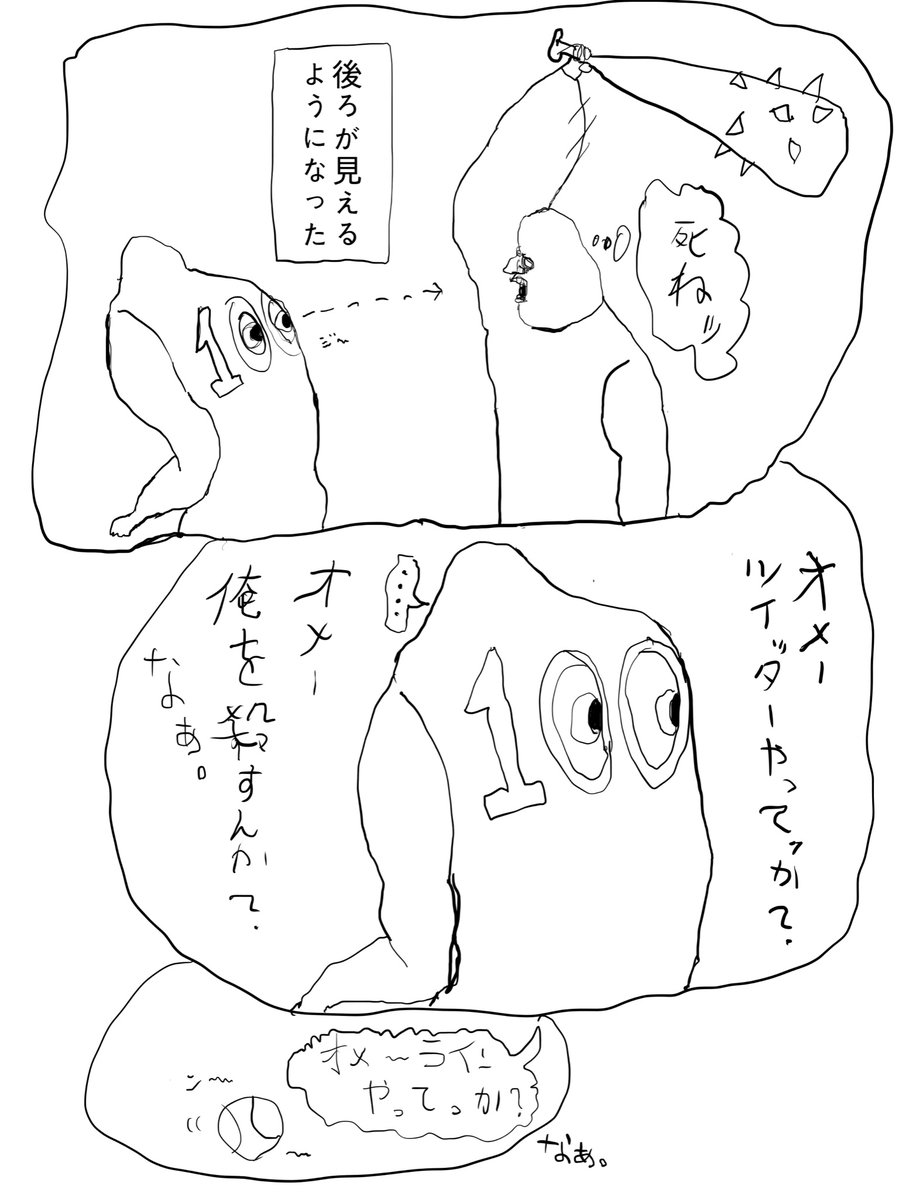 後ろが見える
ようになった
死ねﾞ
100
ジ〜
オメー
ツイッターやってっか?
100
‥‥
オメー
俺を殺すんか?
なぁ。
オメ〜ライン
やってっか?
シ〜
なぁ。